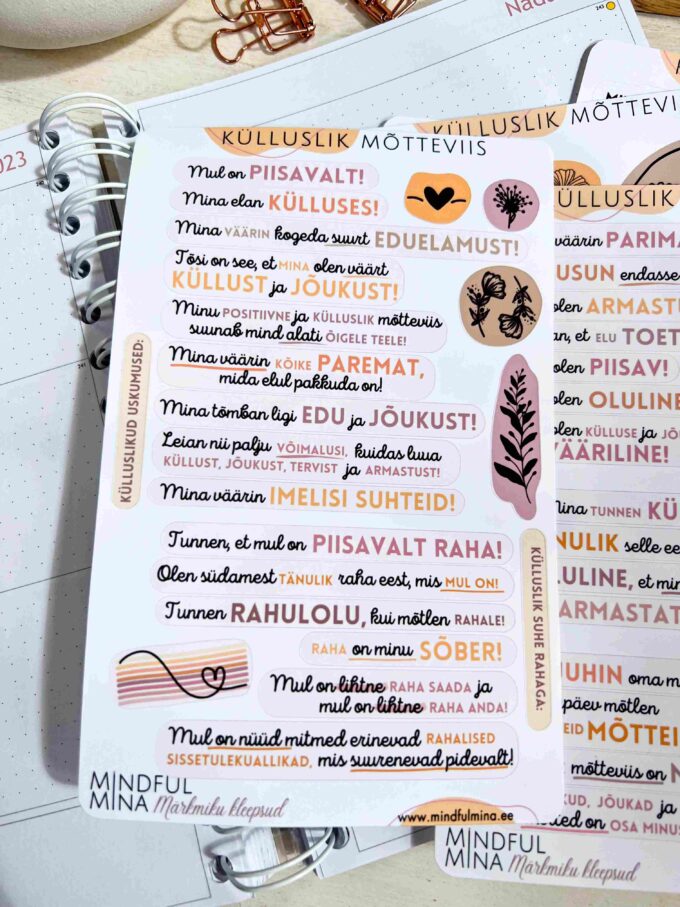 2023
245
KÜLLUSLIK MÕTTEVIIS
Mul on PIISAVALT!
Mina elan KÜLLUSES!
Mina VÄÄRIN kogeda suurt EDUELAMUST!
Tõsi on see, et MINA olen väärt
KÜLLUST ja JÕUKUST!
Minu POSITIIVNE ja KÜLLUSLIK mõtteviis
suunab mind alati ÕIGELE TEELE!
Mina väärin KÕIKE PAREMAT,
mida elul pakkuda on!
Mina tõmban ligi EDU ja JÕUKUST!
Leian nii palju VÕIMALUSI, kuidas luua
KÜLLUST, JÕUKUST, TERVIST ja ARMASTUST!
Mina väärin IMELISI SUHTEID!
KÜLLUSLIKUD USKUMUSED:
Tunnen, et mul on PIISAVALT RAHA!
Olen südamest TÄNULIK raha eest, mis MUL ON!
Tunnen RAHULOLU, kui mõtlen RAHALE!
RAHA on minu SÕBER!
Mul on lihtne RAHA SAADA ja
mul on lihtne RAHA ANDA!
Mul on nüüd mitmed erinevad RAHALISED
SISSETULEKUALLIKAD, mis suurenevad pidevalt!
KÜLLUSLIK SUHE RAHAGA:
MINDFUL
MINA Märkmiku kleepsud
www.mindfulmina.ee
KÜLLUSLIK MÕTTEVIIS
ÜLLUSLIK
väärin PARIMA
USUN endasse
olen ARMASTU
an, et ELU TOET
olen PIISAV!
olen OLULINE
olen KÜLLUSE ja JÕU
VÄÄRILINE!
Mina TUNNEN KÜ
NULIK selle ee
LULINE, et min
ARMASTAT
JUHIN oma m
päev mõtlen
EID MÕTTEI
mõtteviis on
KUD, JÕUKAD ja
on OSA MINUS
MINDFUL
MINA Märkmiku kleepsud